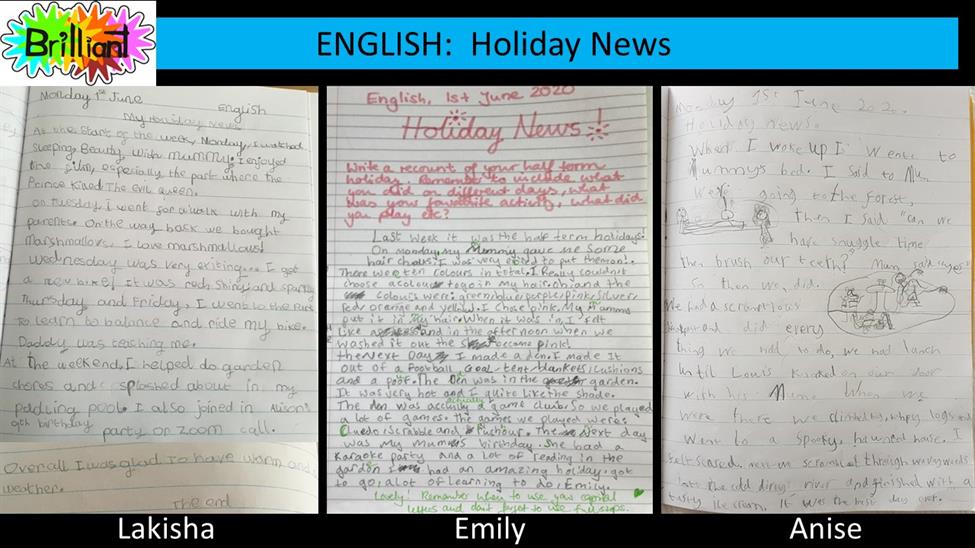 Brilliant
ENGLISH: Holiday News
Monday 1st June
English
My Holiday News
At the start of the week, Monday, I watched
Sleeping Beauty with mummy. I enjoyed
the film, especially the part where the
Prince killed The evil queen.
On Tuesday, I went for a walk with my
parents. On the way back we bought
Marshmallows, I love marshmallows!
Wednesday was very exiting... I got
a new bike! It was red, shiny and sparkly
Thursday and Friday, I went to the Park
To learn to balance and ride my bike.
Daddy was teaching me.
At The weekend, I helped do garden
chores and splashed about in my
paddling pool. I also joined in Alison's
9th birthday
party on Zoom call.
Overall I was glad To have warm and
weather.
The end
English, 1st June 2020
Holiday News!
Write a recount of your half term
holiday. Remember to include what
you did on different days, what
was your favourite activity, what did
you play etc?
Last week it was the half term holidays.
On Monday my Mummy gave me some
hair chalks. I was very to put them on!
There were ten colours in total. I Really couldnt
choose a colour to go in my hair. oh and the
colours were: green blue purple pink silver
red orange and yellow. I chose pink. My mummy
put it in my hair. When it was in I felt
like and in the afternoon when we
washed it out the become pink!
the Next Day I made a den. I made It
out of a Football Goal tent blankets cushions
and a poof. The Den was in the garden.
It was very hot and I quite like the shade.
The den was actually a game club. So we played
a lot of games. the games we played were:
Cluedo Scrabble and . The Next day
was my mums birthday. She had a
Karaoke party and a lot of reading in the
garden had an amazing holiday. got
to go, a lot of learning to do. Emily.
Lovely! Remember when to use your capital
letters and don't forget to use full stops.
Monday 1st June 2020
Holiday news.
When I woke up I Went to
Mummy's bed. I said to Mum
Were going to the forest,
Then I said "can we
have snuggle time
then brush our teeth? Mum said yes
So then we did.
We had a scrumptious
and did every
thing we had to do, we had lunch
until Louis knocked on our door
with his Mum. When we
were there we climbed logs and
Went to a spooky, haunted house. I
felt scared. next we through
the cold dirty river and finished with a
tasty ice cream. It was the best day ever.
Lakisha
Emily
Anise